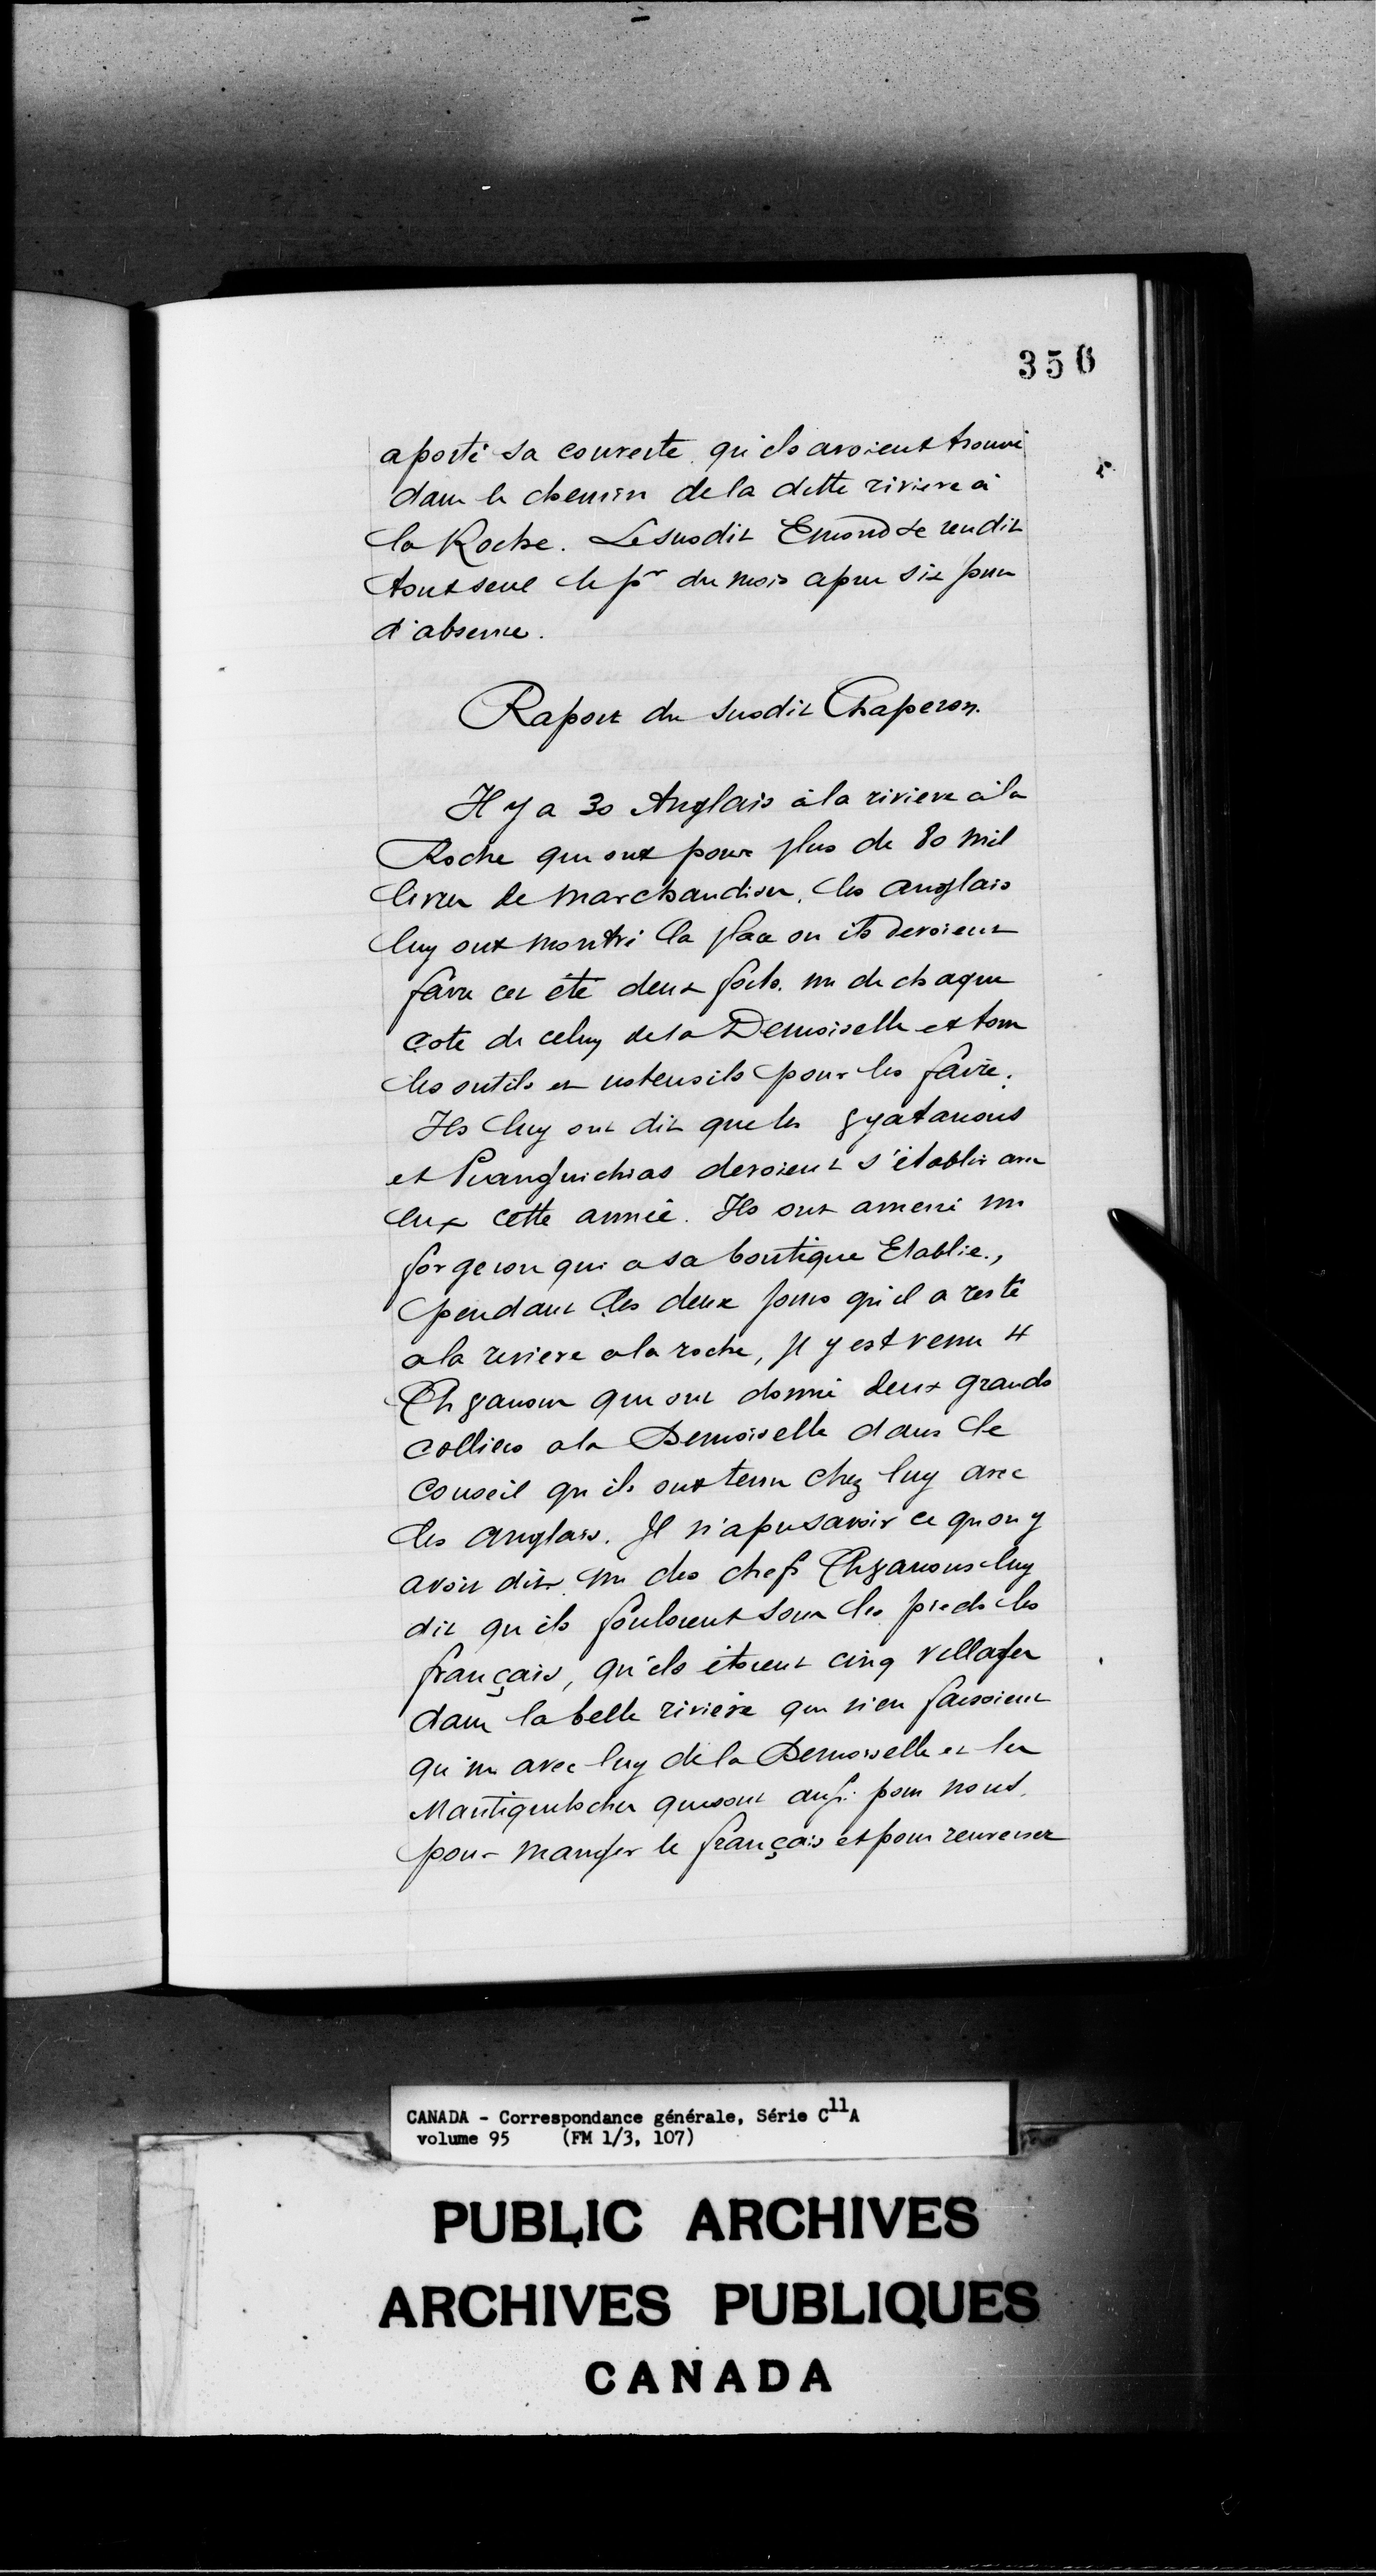 356
aporté sa couverte qu'ils avoient trouvé
dans le chemin de la ditte riviere à
la Roche. Le susdit Emond se rendit
tout seul le pr du mois apres six jours
d'absence.
Raport du susdit Chaperon.
Il y a 30 Anglais à la riviere à la
Roche qui ont pour plus de 80 mil
livres de marchandises. les anglais
luy ont montré la place ou ils devoient
faire cet été deux forts. un de chaque
coté de celuy de la Demoiselle et tous
les outils et ustensils pour les faire.
Ils luy ont dit que les 8yatanons
et Pianguichias devoient s'établir avec
eux cette année. Ils ont amené un
forgeron qui a sa boutique Etablie.,
pendant les deux jours qu'il a resté
a la riviere a la roche, Il y est venu 4
Ch8anons qui ont donné deux grands
colliers a la Demoiselle dans le
Conseil qu'ils ont tenu chez luy avec
les anglais. Il n'a pu savoir ce qu'on y
avoit dit. un des chefs Ch8anons luy
dit qu'ils fouloient sous les pieds les
français, qu'ils étoient cinq villages
dans la belle riviere qui n'en faisoient
qu'un avec luy de la Demoiselle et les
qui sont aussi pour nous.
pour manger le français et pour renverser
CANADA - Correspondance générale, Série C11A
volume 95 (FM 1/3, 107)
PUBLIC ARCHIVES
ARCHIVES PUBLIQUES
CANADA